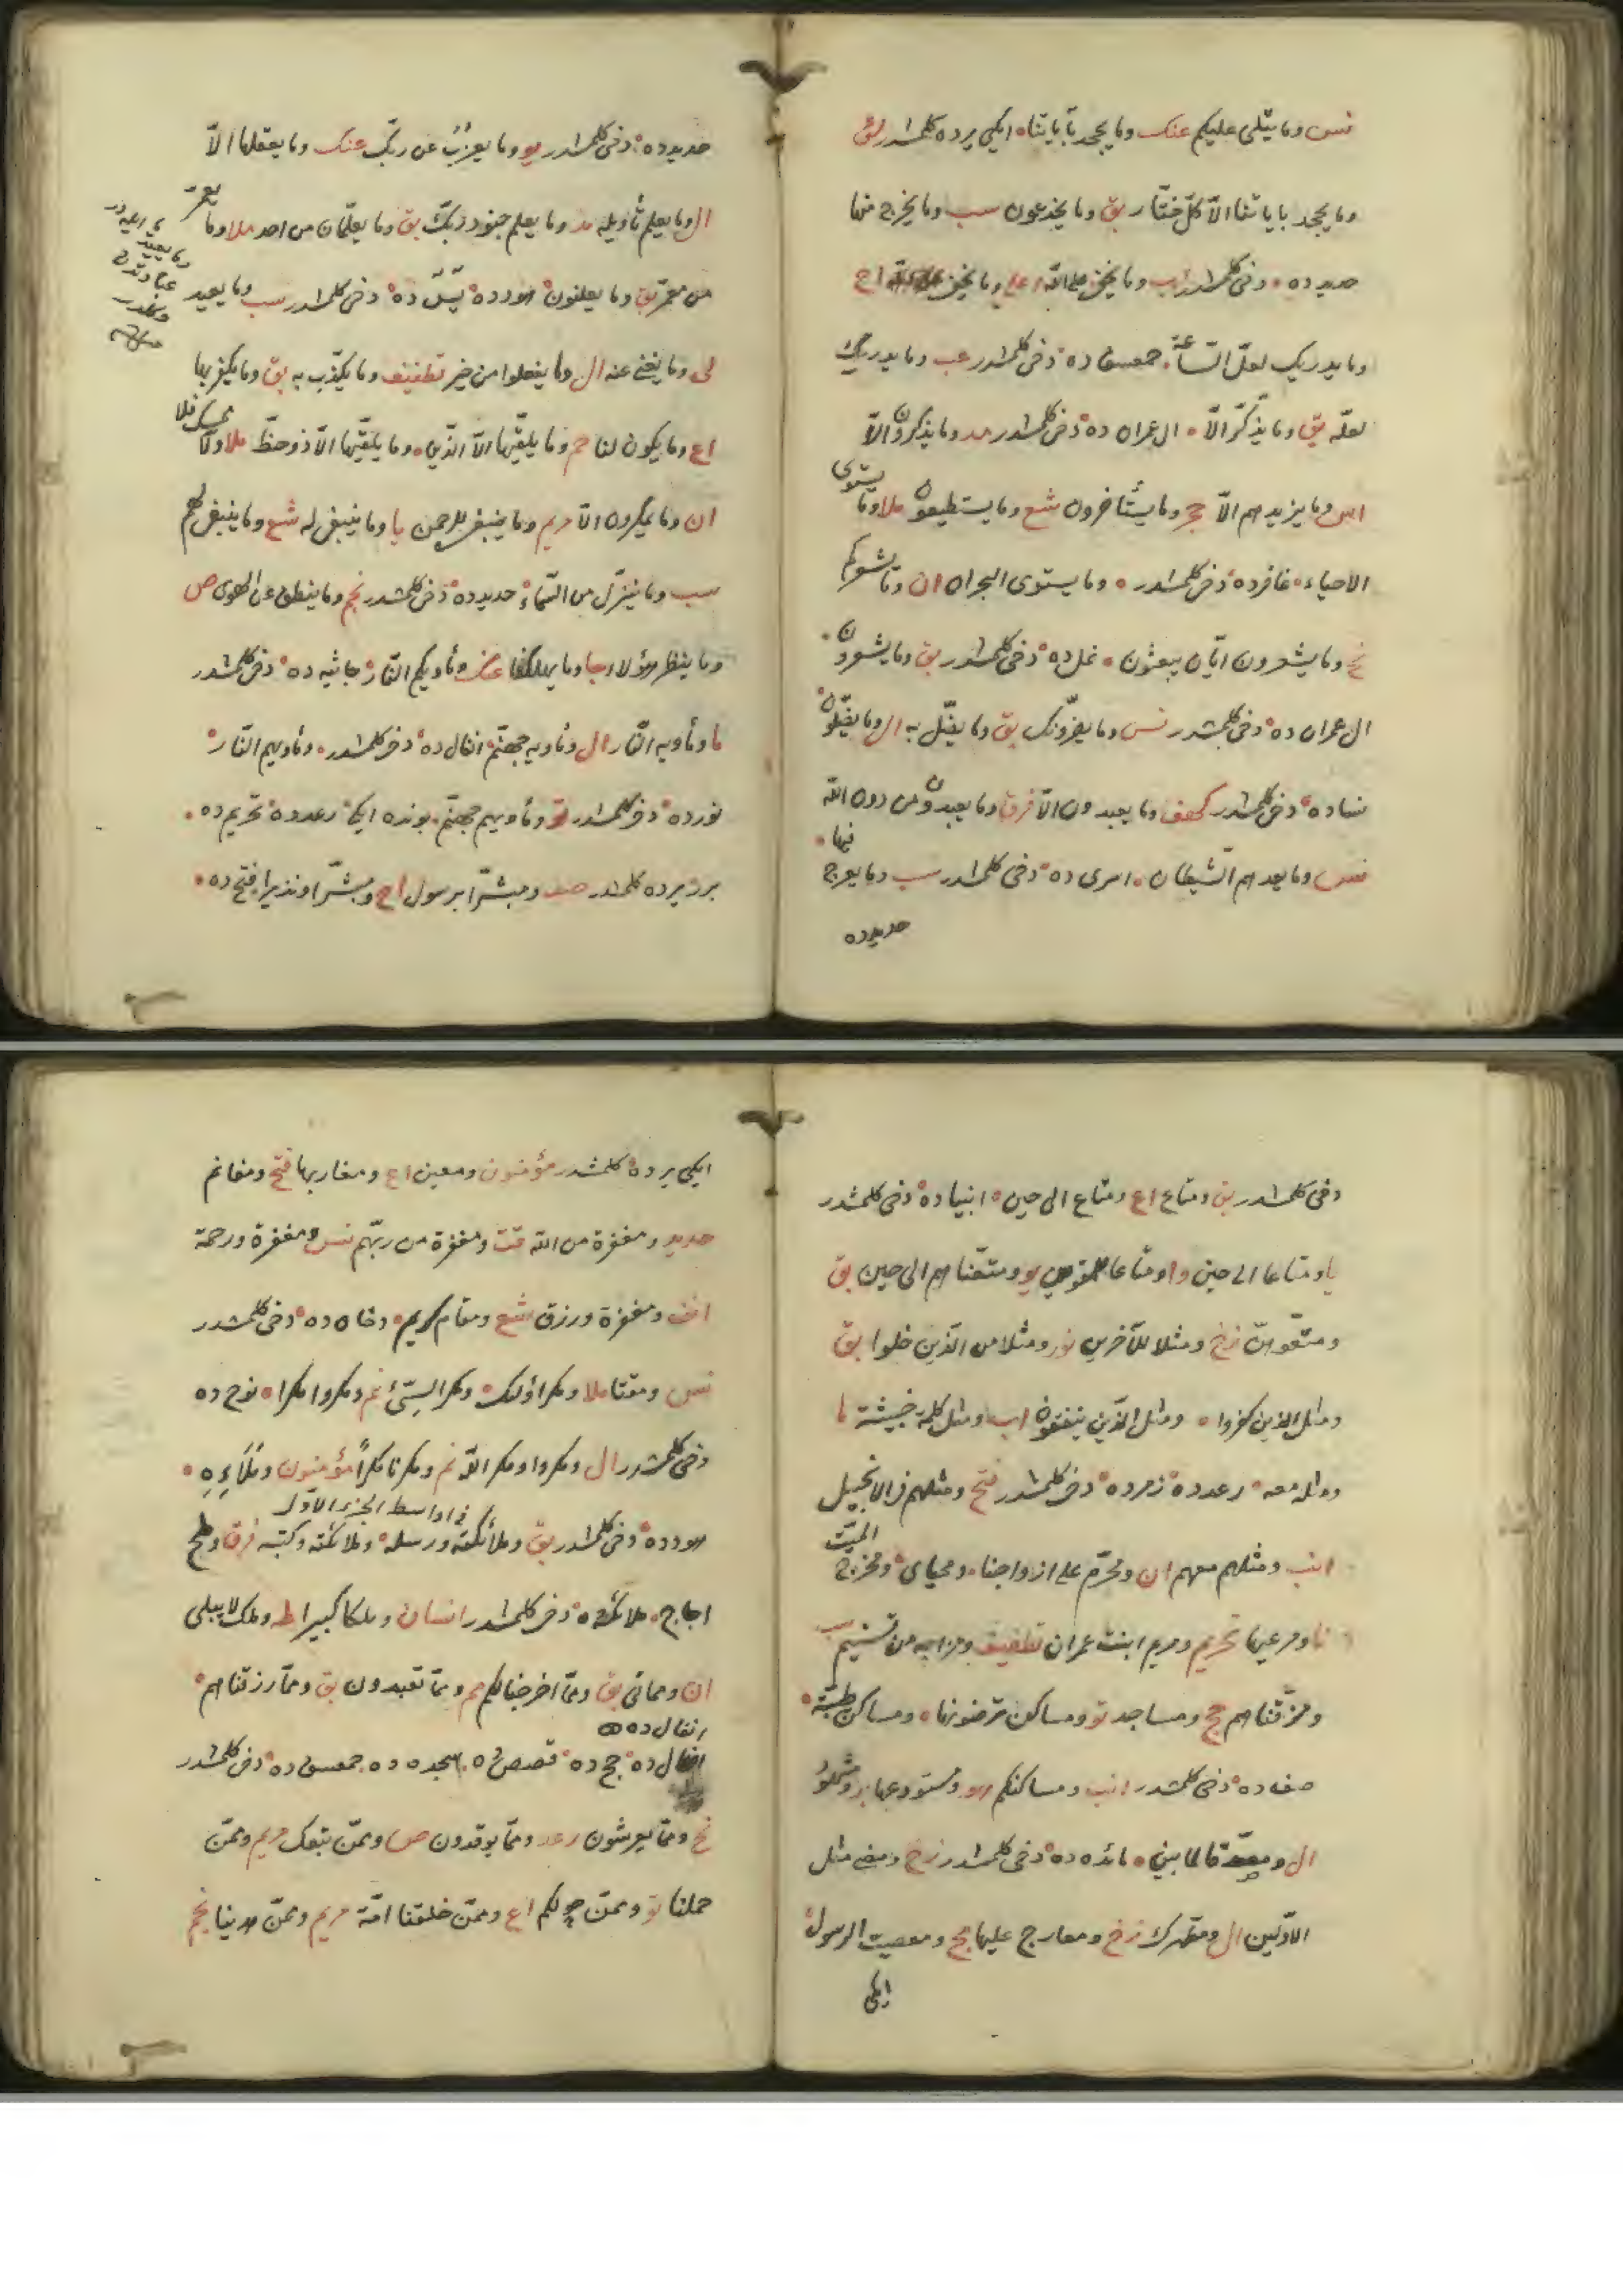 نس وما يتلى عليكم عنك وما يجحد بآياتنا ايكى يرده كلمشدر لق
وما يجحد باياتنا الا كل ختار بق وما يخدعون سب وما يخرج منها
حديد ده دخى كلمشدر اب وما يخفى على الله اعلى وما يخفى اح
وما يدريك لعل الساعة حمعسق ده دخى كلمشدر عب وما يدريك
لعله بق وما يذكر الا ال عمران ده دخى كلمشدر مد وما يذكرون الا
اس وما يزيدهم الا حج وما يستأخرون شع وما يستطيعون ملا وما يستوى
الاحياء غافر ده دخى كلمشدر وما يستوى البحران ان وما يشعركم
نح وما يشعرون ايان يبعثون نمل ده دخى كلمشدر بق وما يشعرون
ال عمران ده دخى كلمشدر نس وما يضرونك بق وما يضل به ال وما يضلون
نساده دخى كلمشدر كهف وما يعبدون الا فرق وما يعبدون من دون الله
نس وما يعدهم الشيطان اسرى ده دخى كلمشدر سب وما يعرج فيها
حديد ده
حديد ده دخى كلمشدر يو وما يعزب عن ربك عنك وما يعقلها الا
ال وما يعلم تأويله مد وما يعلم جنود ربك بق وما يعلمان من احد ملا وما يعمر
من معمر بق وما يعلنون هود ده يس ده دخى كلمشدر سب وما يعيد
وما يعيد
لى وما يغنى عنه ال وما يفعلوا من خير تطفيف وما يكذب به بق وما يكفر بها
اع وما يكون لنا حم وما يلقيها الا الذين وما يلقيها الا ذو حظ ملا وما يمسك فلا
ان وما يمكرون الا مريم وما ينبغى للرحمن يا وما ينبغى له شع وما ينبغى لهم
سب وما ينزل من السماء حديد ده دخى كلمشدر نجم وما ينطق عن الهوى ص
وما ينظر هؤلاء جا وما يهلكنا عنك ومأويكم النار جاثيه ده دخى كلمشدر
ما ومأويه النار ال ومأويه جهنم انفال ده دخى كلمشدر ومأويهم النار
نور ده دخى كلمشدر تو ومأويهم جهنم بونده ايكى رعد ده تحريم ده
برر يرده كلمشدر صف ومبشرا برسول اح ومبشرا ونذيرا فتح ده
دخى كلمشدر بق ومتاع اع ومتاع الى حين انبيا ده دخى كلمشدر
يا ومتاعا الى حين وا ومتاعا للمقوين يو ومتعناهم الى حين بق
ومتعوهن زخ ومثلا للآخرين نور ومثلا من الذين خلوا بق
ومثل الذين كفروا ومثل الذين ينفقون اب ومثل كلمة خبيثة ما
ومثله معه رعد ده زمر ده دخى كلمشدر فتح ومثلهم فى الانجيل
انب ومثلهم معهم ان ومحرم على ازواجنا ومحياى ومخرج الميت
نا ومرعيها تحريم ومريم ابنت عمران تطفيف ومزاجه من تسنيم سب
ومزقناهم حج ومساجد تو ومساكن ترضونها ومساكن طيبة
صف ده دخى كلمشدر انب ومساكنكم هو ومستودعها بر ومشهود
ال ومصدقا لما بين مائده ده دخى كلمشدر زخ ومضى مثل
الاولين ال ومطهرك زخ ومعارج عليها مج ومعصيت الرسول
ايكى
ايكى يرده كلمشدر مؤمنون ومعين اع ومغاربها فتح ومغانم
حديد ومغفرة من الله قت ومغفرة من ربهم نس ومغفرة ورحمة
انف ومغفرة ورزق شع ومقام كريم دخان ده دخى كلمشدر
نس ومقتا ملا ومكر اولئك ومكر السيئ نم ومكروا مكرا نوح ده
دخى كلمشدر ال ومكروا ومكر الله نم ومكرنا مكرا مؤمنون وملائه
فى اواسط الجزء الاول
هود ده دخى كلمشدر بق وملائكته ورسله وملائكته وكتبه فرق وملح
اجاج ملائكه ده دخى كلمشدر انسان وملكا كبيرا طه وملك لا يبلى
ان ومماتى بق ومما اخرجنا لكم حم ومما تعبدون بق ومما رزقناهم
انفال ده
انفال ده حج ده قصص ده سجده ده حمعسق ده دخى كلمشدر
نح ومما يعرشون رعد ومما يوقدون ص وممن تبعك مريم وممن
حملنا تو وممن حولكم اع وممن خلقنا امة مريم وممن هدينا نجم